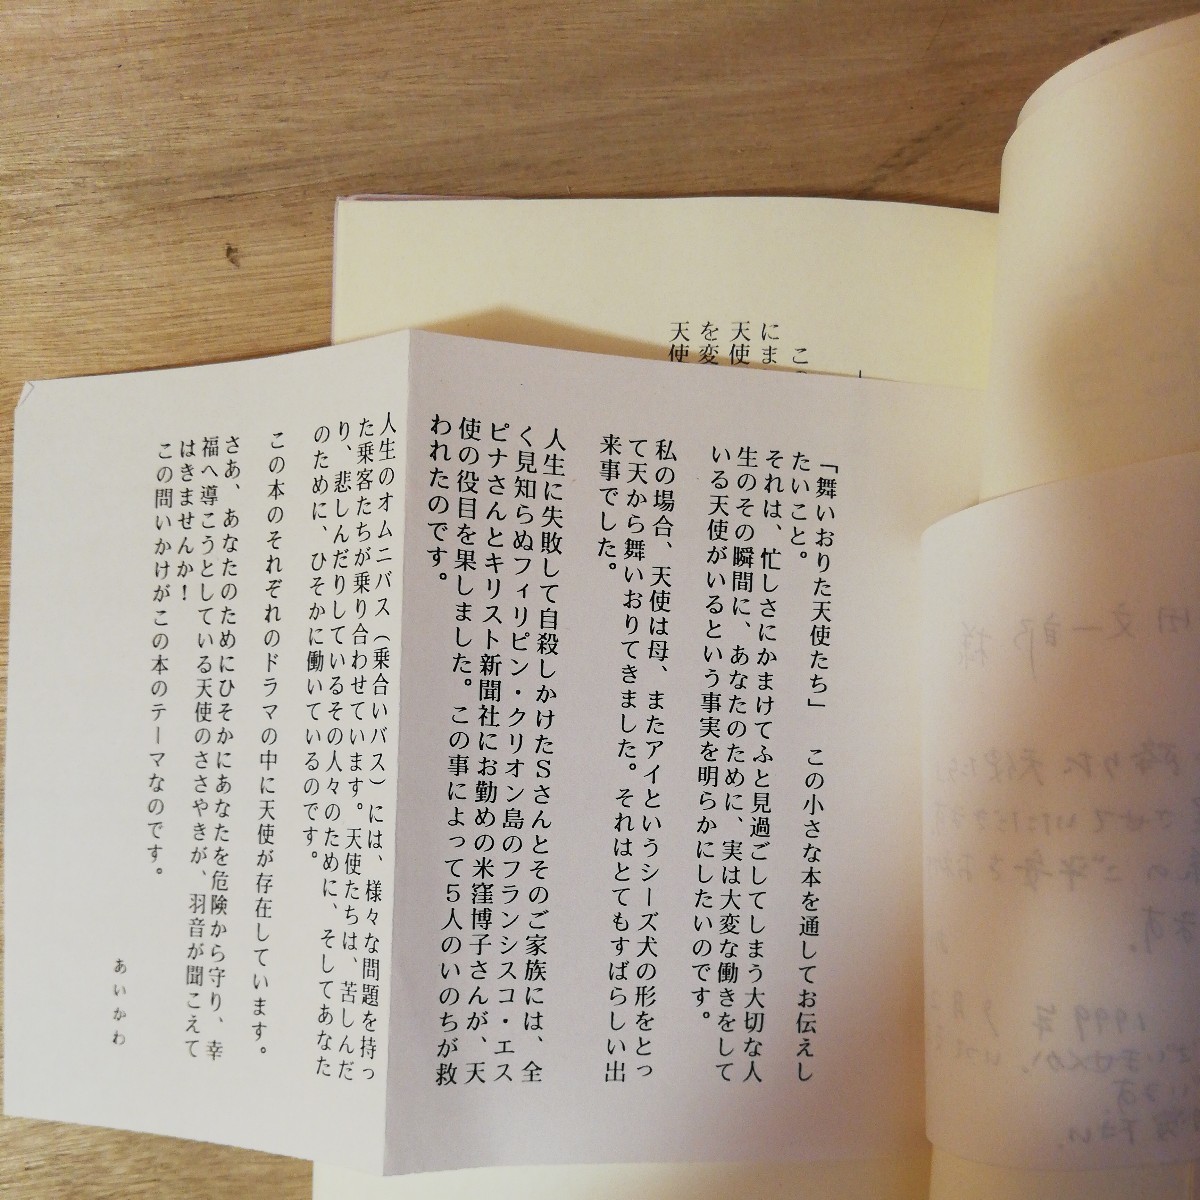 「舞いおりた天使たち」　この小さな本を通してお伝えし
たいこと。
それは、忙しさにかまけてふと見過ごしてしまう大切な人
生のその瞬間に、あなたのために、実は大変な働きをして
いる天使がいるという事実を明らかにしたいのです。
私の場合、天使は母、またアイというシーズ犬の形をとっ
て天から舞いおりてきました。それはとてもすばらしい出
来事でした。
人生に失敗して自殺しかけたSさんとそのご家族には、全
く見知らぬフィリピン・クリオン島のフランシスコ・エス
ピナさんとキリスト新聞社にお勤めの米窪博子さんが、天
使の役目を果しました。この事によって5人のいのちが救
われたのです。
人生のオムニバス（乗合いバス）には、様々な問題を持っ
た乗客たちが乗り合わせています。天使たちは、苦しんだ
り、悲しんだりしているその人々のために、そしてあなた
のために、ひそかに働いているのです。
この本のそれぞれのドラマの中に天使が存在しています。
さあ、あなたのためにひそかにあなたを危険から守り、幸
福へ導こうとしている天使のささやきが、羽音が聞こえて
はきませんか！
この問いかけがこの本のテーマなのです。
あいかわ
にま
天使
を変
天使
文一郎様
1999年